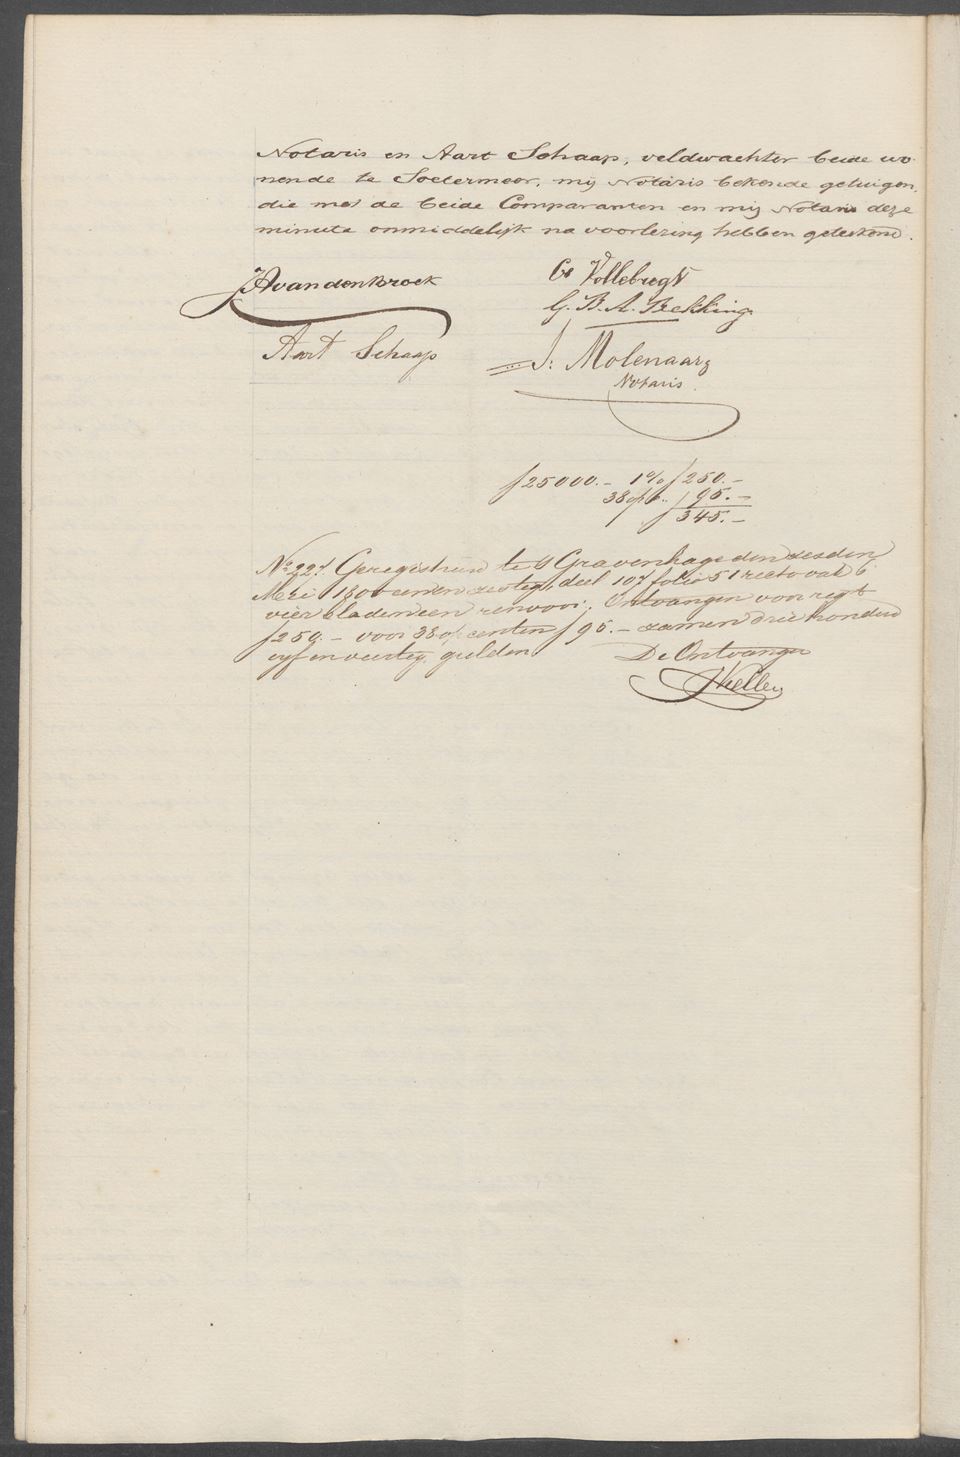 Notaris en Aart Schaap, veldwachter beide wo-
nende te Soetermeer, mij Notaris bekende getuigen,
die met de beide Comparanten en mij Notaris deze
minute onmiddelijk na voorlezing hebben geteekend.
JAvandenBroek
Cs Vollebregt
G. B. A. Bekking
Aart Schaap
J: Molenaarz
Notaris.
f 25000.- 1% f 250.-
38 op c. f 95.-
f 345.-
No 227. Geregistreerd te 's Gravenhage den zesden
Mei 1800 een en zestig, deel 107 folio 51 recto vak 6
vier bladen een renvooi; Ontvangen voor regt
f 250.- voor 38 opcenten f 95.- zamen drie honderd
vijf en veertig gulden
De Ontvanger